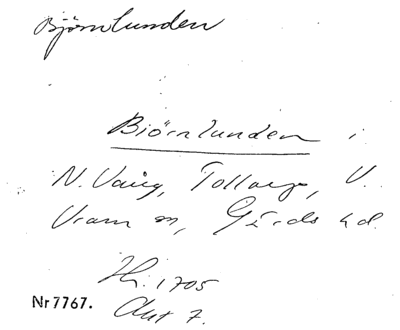 Björnlunden
Biörnlunden i
N. Vång, Tollarp, V.
Vram sn, Gärds hd.
Hi. 1705
Akt 7.
Nr 7767.